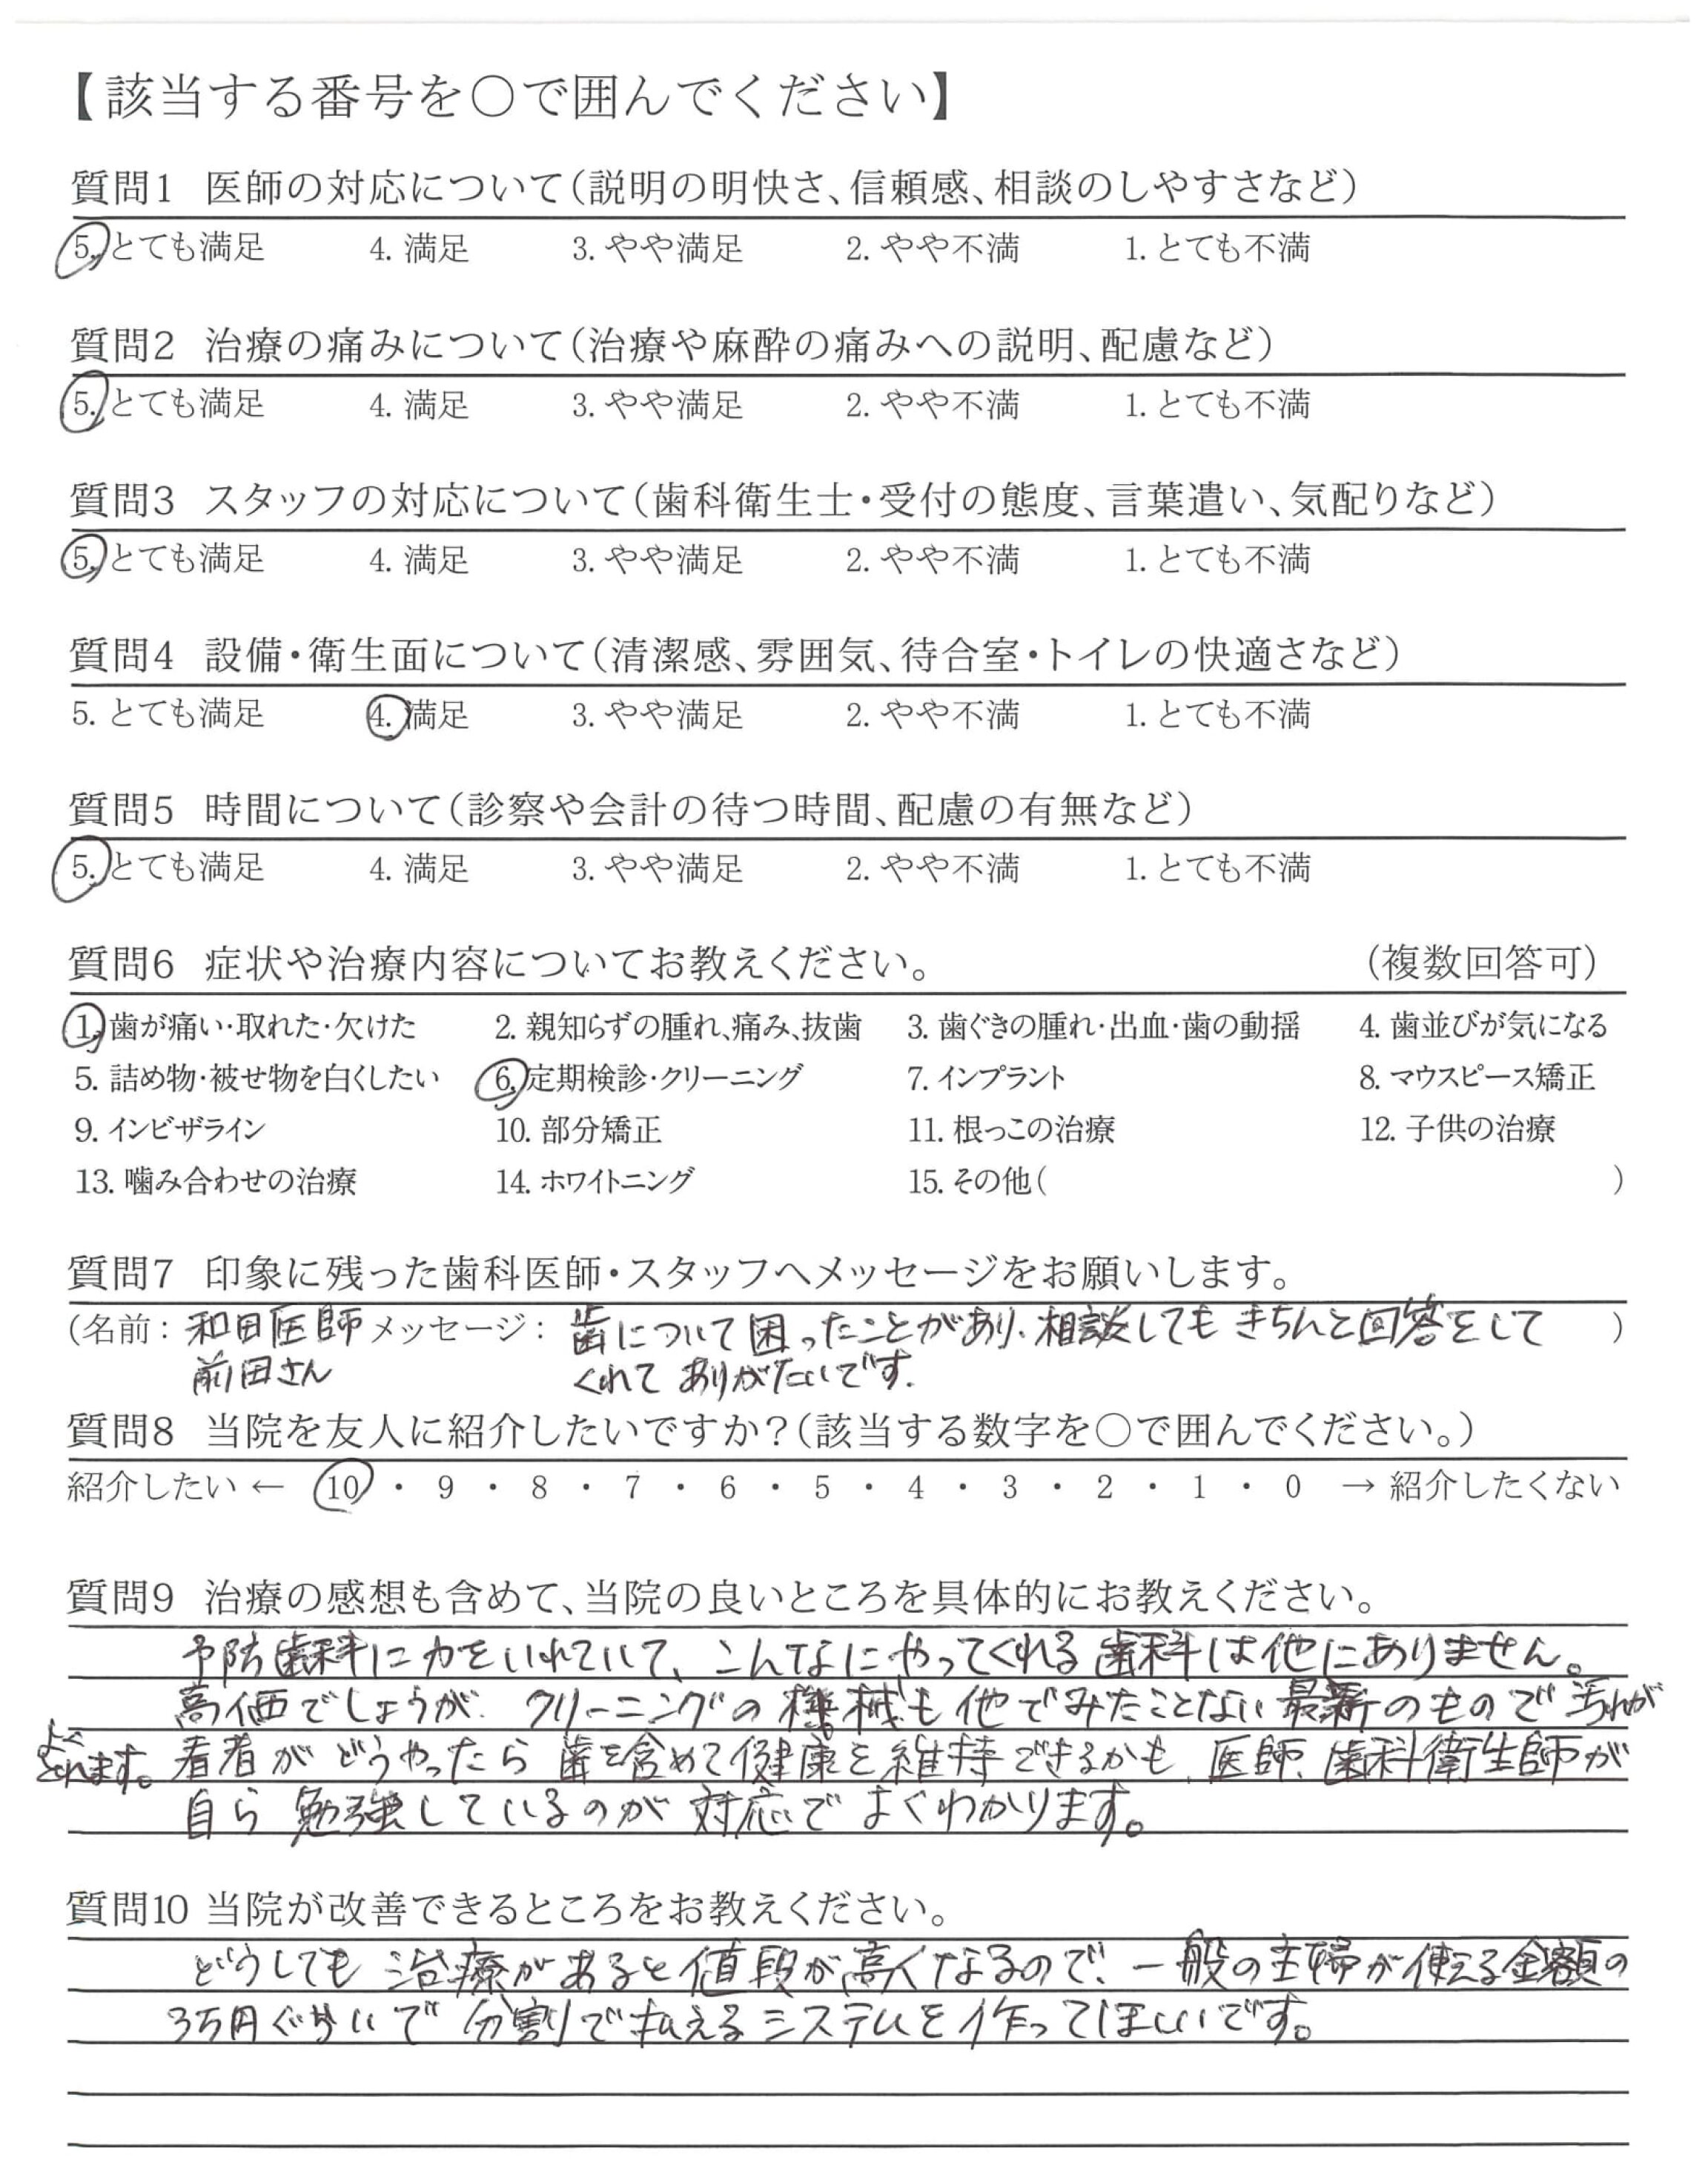 【該当する番号を〇で囲んでください】
質問1 医師の対応について（説明の明快さ、信頼感、相談のしやすさなど）
5. とても満足 4. 満足 3. やや満足 2. やや不満 1. とても不満
質問2 治療の痛みについて（治療や麻酔の痛みへの説明、配慮など）
5. とても満足 4. 満足 3. やや満足 2. やや不満 1. とても不満
質問3 スタッフの対応について（歯科衛生士・受付の態度、言葉遣い、気配りなど）
5. とても満足 4. 満足 3. やや満足 2. やや不満 1. とても不満
質問4 設備・衛生面について（清潔感、雰囲気、待合室・トイレの快適さなど）
5. とても満足 4. 満足 3. やや満足 2. やや不満 1. とても不満
質問5 時間について（診察や会計の待つ時間、配慮の有無など）
5. とても満足 4. 満足 3. やや満足 2. やや不満 1. とても不満
質問6 症状や治療内容についてお教えください。 （複数回答可）
1. 歯が痛い・取れた・欠けた 2. 親知らずの腫れ、痛み、抜歯 3. 歯ぐきの腫れ・出血・歯の動揺 4. 歯並びが気になる
5. 詰め物・被せ物を白くしたい 6. 定期検診・クリーニング 7. インプラント 8. マウスピース矯正
9. インビザライン 10. 部分矯正 11. 根っこの治療 12. 子供の治療
13. 噛み合わせの治療 14. ホワイトニング 15. その他（ ）
質問7 印象に残った歯科医師・スタッフへメッセージをお願いします。
（名前：和田医師 メッセージ：歯について困ったことがあり、相談してもきちんと回答をして ）
前田さん くれてありがたいです。
質問8 当院を友人に紹介したいですか？（該当する数字を〇で囲んでください。）
紹介したい ← 10 ・ 9 ・ 8 ・ 7 ・ 6 ・ 5 ・ 4 ・ 3 ・ 2 ・ 1 ・ 0 → 紹介したくない
質問9 治療の感想も含めて、当院の良いところを具体的にお教えください。
予防歯科に力をいれていて、こんなにやってくれる歯科は他にありません。
高価でしょうが、クリーニングの機械も他でみたことない最新のもので汚れが
よく
とれます。患者がどうやったら歯を含めて健康を維持できるかも、医師、歯科衛生師が
自ら勉強しているのが対応でよくわかります。
質問10 当院が改善できるところをお教えください。
どうしても治療があると値段が高くなるので、一般の主婦が使える金額の
3万円ぐらいで分割で払えるシステムを作ってほしいです。